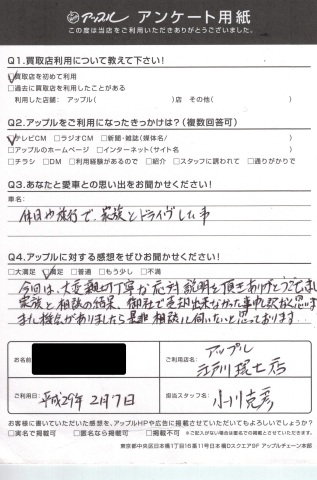 アップル アンケート用紙
この度は当店をご利用いただきありがとうございました。
Q1.買取店利用について教えて下さい!
□買取店を初めて利用
□過去に買取店を利用したことがある
利用した店舗: アップル( )店 その他( )
Q2.アップルをご利用になったきっかけは?(複数回答可)
□テレビCM □ラジオCM □新聞・雑誌(媒体名/ )
□アップルのホームページ □インターネット(サイト名 )
□チラシ □DM □利用経験があるので □紹介 □スタッフに誘われて □通りがかりで
Q3.あなたと愛車との思い出をお聞かせください!
車名:
休日や旅行で、家族とドライブした事
Q4.アップルに対する感想をぜひお聞かせください!
□大満足 □満足 □普通 □もう少し □不満
今回は、大変親切丁寧な応対説明を頂きありがとうございまし
家族と相談の結果、御社で売却出来なかった事申し訳なく思いま
また機会がありましたら是非相談に伺いたいと思っております。
お名前
ご利用店名:
アップル
江戸川瑞江店
ご利用日:
平成29年2月7日
担当スタッフ名:
小川克彦
お客様に書いていただいた感想を、アップルHPや広告に掲載させていただいてもよろしいでしょうか?
□実名で掲載可 □匿名なら掲載可 □掲載不可 ※ご記入がない場合は匿名での掲載とさせていただきます。
東京都中央区日本橋1丁目16番11号日本橋Dスクエア5F アップルチェーン本部